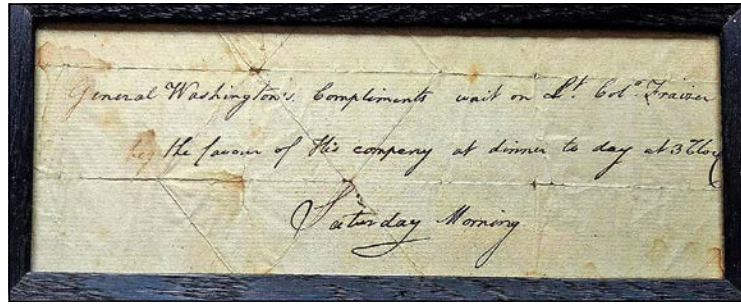 General Washington's Compliments wait on Lt. Colo. Fraizer
beg the favour of His company at dinner to day at 3 Cloc
Saturday Morning